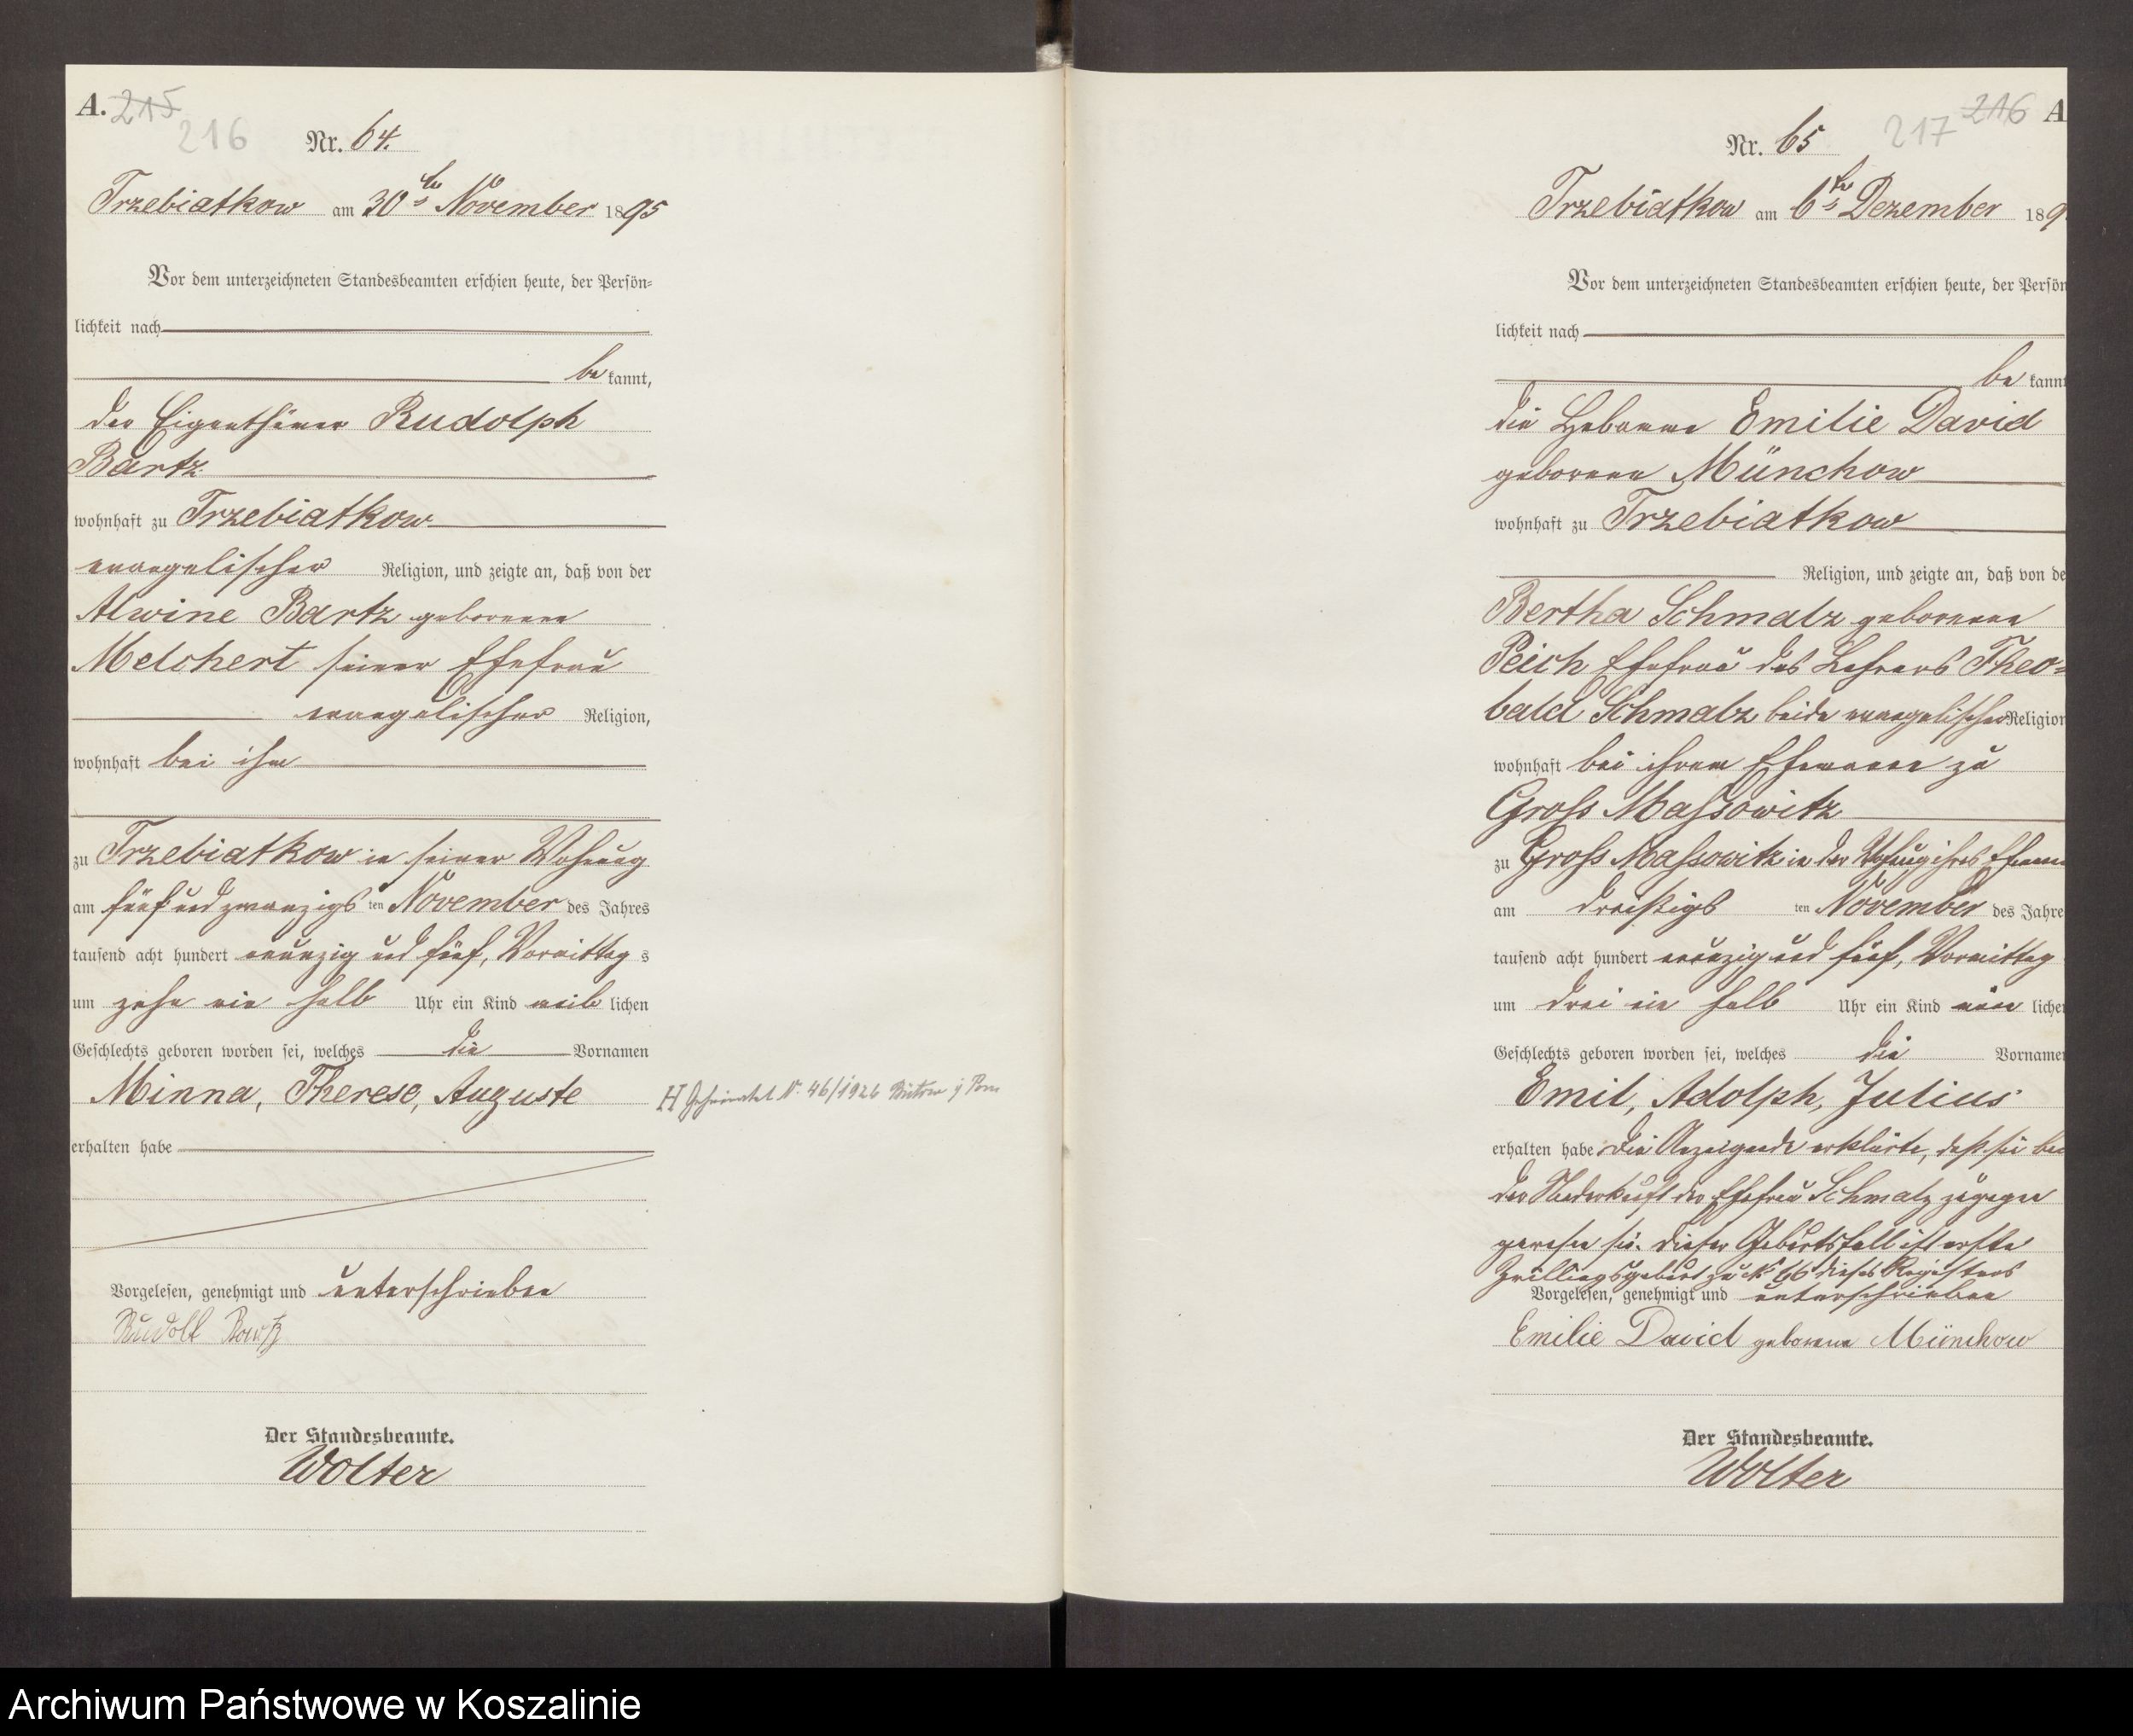 A. 215
216
Nr. 64.
Trzebiatkow am 30ten November 1895
Vor dem unterzeichneten Standesbeamten erschien heute, der Persön=
lichkeit nach
be kannt,
der Eigenthümer Rudolph
Bartz
wohnhaft zu Trzebiatkow
evangelischer Religion, und zeigte an, daß von der
Alwine Bartz geborenen
Melchert seiner Ehefrau
evangelischer Religion,
wohnhaft bei ihm
zu Trzebiatkow in seiner Wohnung
am fünf und zwanzigs ten November des Jahres
tausend acht hundert neunzig und fünf, Vormittag s
um zehn ein halb Uhr ein Kind weib lichen
Geschlechts geboren worden sei, welches die Vornamen
Minna, Therese, Auguste
erhalten habe
Vorgelesen, genehmigt und unterschrieben
Rudolf Bartz
Der Standesbeamte.
Wolter
H Geheiratet Nr. 46/1926 Bütow i/Pom
216 A
217
Nr. 65
Trzebiatkow am 6ten Dezember 189
Vor dem unterzeichneten Standesbeamten erschien heute, der Persön
lichkeit nach
be kannt
die Hebamme Emilie David
geborene Münchow
wohnhaft zu Trzebiatkow
Religion, und zeigte an, daß von de
Bertha Schmalz geborenen
Peich Ehefrau des Lehrers Theo=
bald Schmalz beide evangelischer Religion
wohnhaft bei ihrem Ehemann zu
Gross Massowitz
zu Gross Massowitz in der Wohnung ihres Ehemann
am dreißigs ten November des Jahre
tausend acht hundert neunzig und fünf, Vormittag
um drei ein halb Uhr ein Kind männ liche
Geschlechts geboren worden sei, welches die Vorname
Emil, Adolph, Julius
erhalten habe Die Anzeigende erklärte, daß sie bei
der Niederkunft der Ehefrau Schmalz zugegen
gewesen sei. Dieser Geburtsfall ist erste
Zwillingsgeburt zu No 66 dieses Registers
Vorgelesen, genehmigt und unterschrieben
Emilie David geborene Münchow
Der Standesbeamte.
Wolter
Archiwum Państwowe w Koszalinie